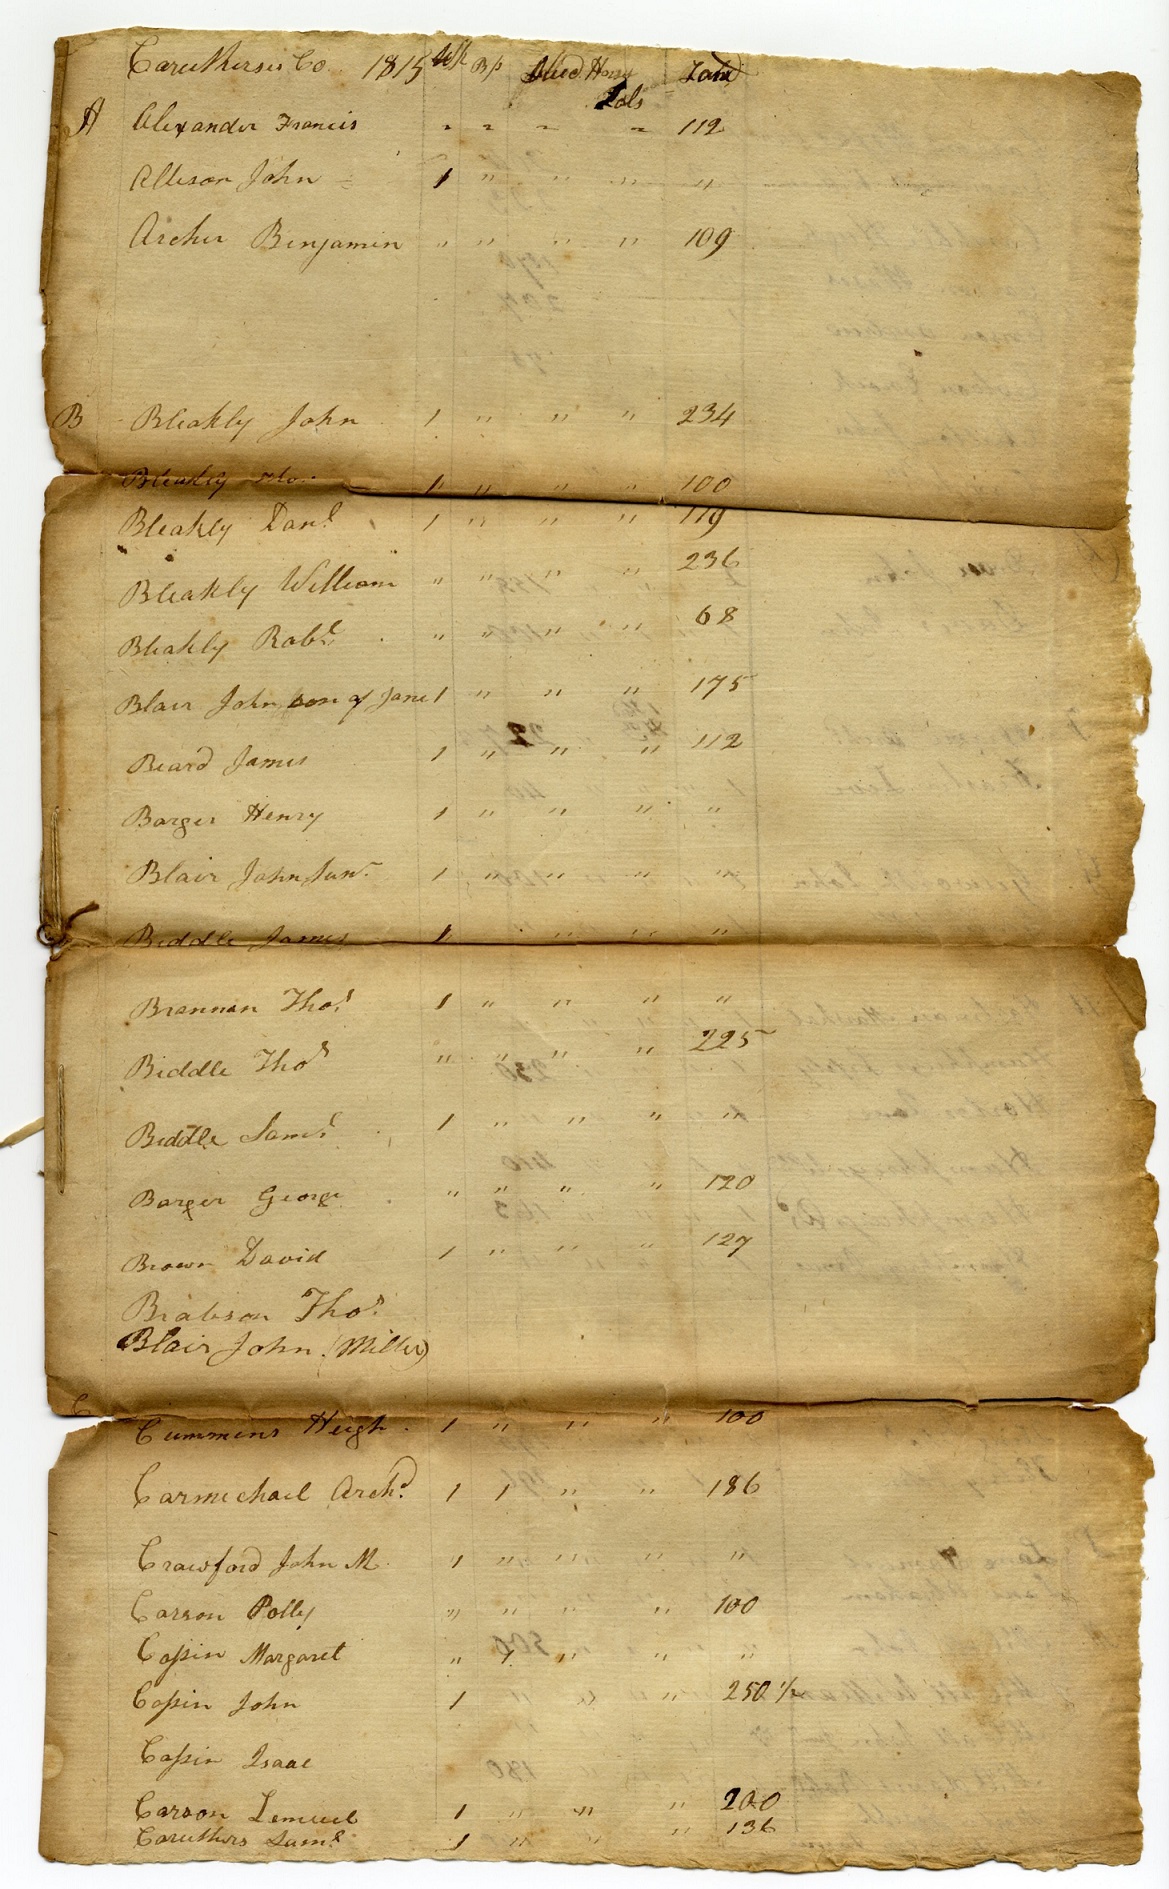 Caruthers's Co 1815 Wh Bp Stud Horse Land
Lots
A Alexander Francis " " " " 112
Allison John 1 " " " "
Archer Benjamin " " " " 109
B Bleakly John 1 " " " 234
Bleakly 1 " " " 100
Bleakly Danl 1 " " " 119
Bleakly William " " " " 236
Bleakly Robt " " " " 68
Blair John son of Jane 1 " " " 175
Beard James 1 " " " 112
Barger Henry 1 " " " "
Blair John Junr 1 " " " "
Biddle James 1 " " "
Brannan Thos 1 " " " "
Biddle Thos " " " " 225
Biddle Saml 1 " " " "
Barger George " " " " 120
Brown David 1 " " " 127
Brabson Thos
Blair John (Miller)
C Cummens Heigh 1 " " " 100
Carmichael Archd 1 1 " " 186
Crawford John M 1 " " " "
Carson Polly " " " " 100
Caſsin Margaret " 1 " " "
Caſsin John 1 " " 250 1/2
Caſsin Isaac
Carson Lemuel 1 " " " 200
Caruthers Saml 1 " " " 136